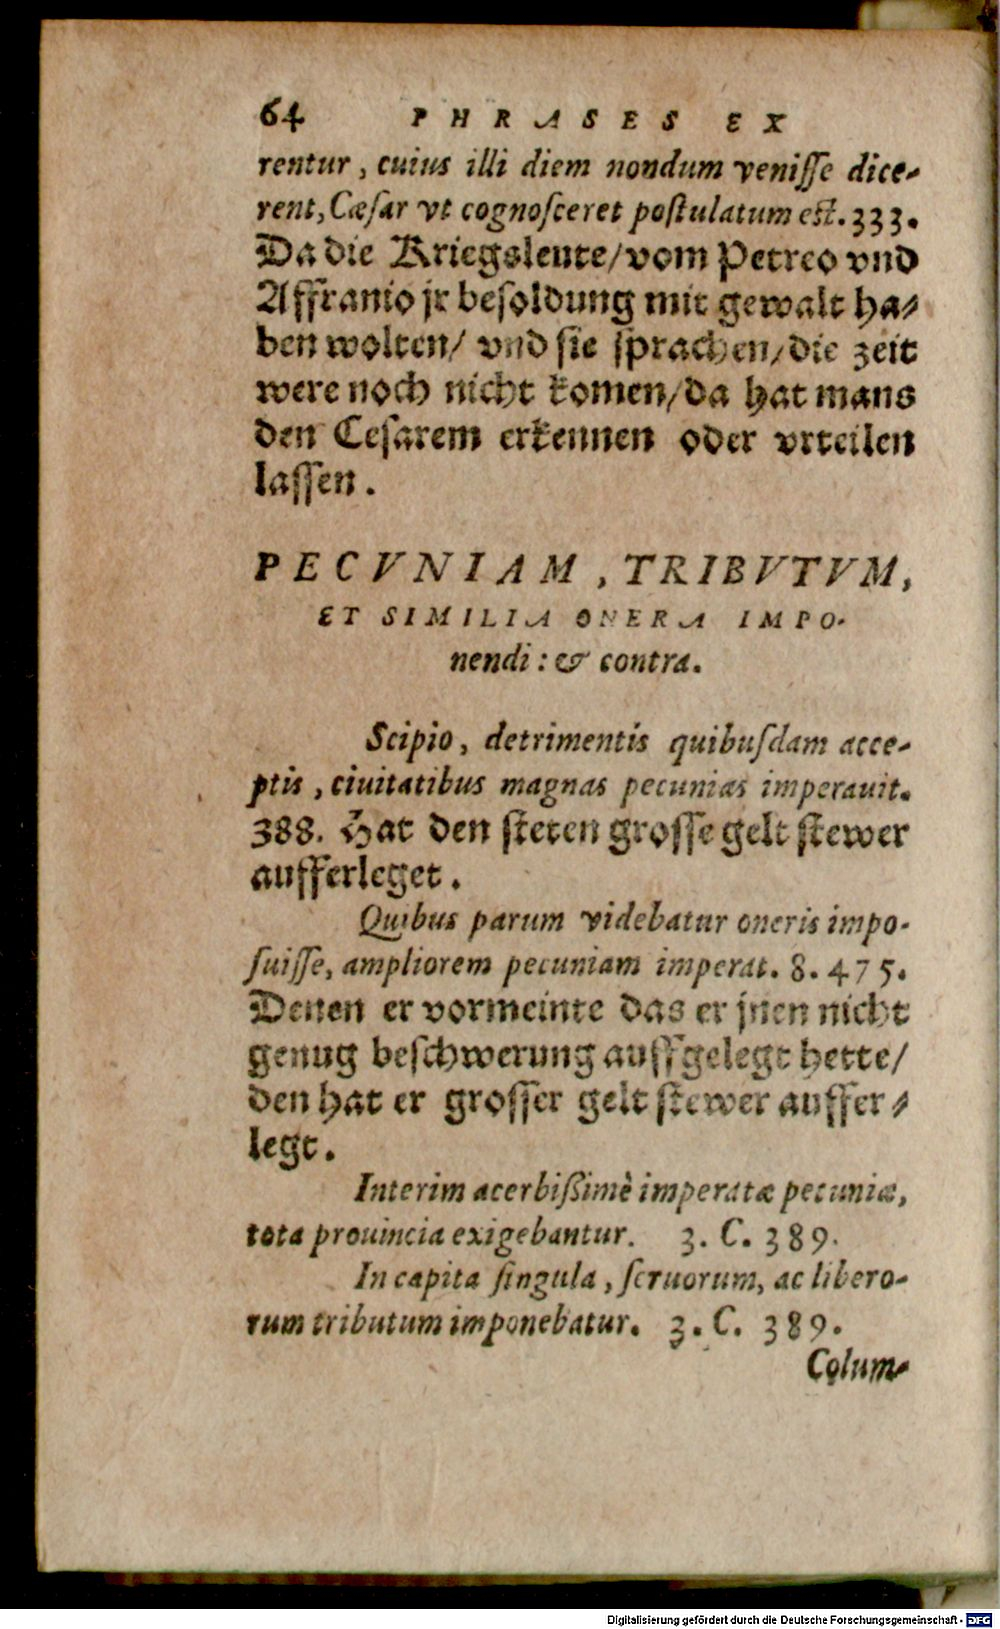 64 PHRASES EX
rentur, cuius illi diem nondum veniſſe dice-
rent, Cæſar vt cognoſceret poſtulatum eſt. 333.
Da die Kriegsleute/ vom Petreo vnd
Affranio jr beſoldung mit gewalt ha-
ben wolten/ vnd ſie ſprachen/ die zeit
were noch nicht komen/ da hat mans
den Ceſarem erkennen oder vrteilen
laſſen.
PECVNIAM, TRIBVTVM,
ET SIMILIA ONERA IMPO-
nendi: & contra.
Scipio, detrimentis quibuſdam acce-
ptis, ciuitatibus magnas pecunias imperauit.
388. Hat den ſteten groſſe gelt ſtewer
aufferleget.
Quibus parum videbatur oneris impo-
ſuiſſe, ampliorem pecuniam imperat. 8. 475.
Denen er vormeinte das er jnen nicht
genug beſchwerung auffgelegt hette/
den hat er groſſer gelt ſtewer auffer-
legt.
Interim acerbiſſimè imperatæ pecuniæ,
tota prouincia exigebantur. 3. C. 389.
In capita ſingula, ſeruorum, ac libero-
rum tributum imponebatur. 3. C. 389.
Colum-
Digitalisierung gefördert durch die Deutsche Forschungsgemeinschaft - DFG